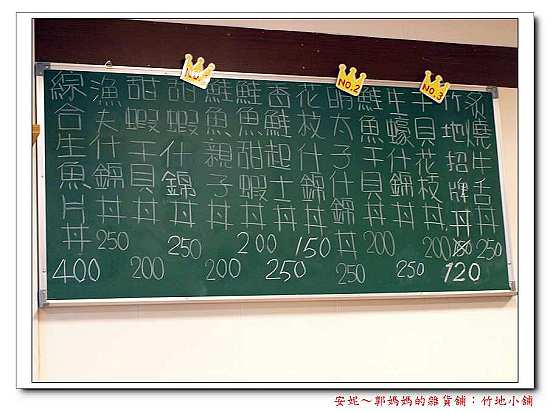 炙燒牛舌丼 250
NO.3
竹地招牌丼 120
干貝花枝丼 200
生蠔什錦丼 250
NO.2
鮭魚干貝丼 200
明太子什錦丼 250
花枝什錦丼 150
香鮭起士丼 250
鮭魚甜蝦丼 200
鮭魚親子丼 200
NO.1
甜蝦什錦丼 250
甜蝦干貝丼 200
漁夫什錦丼 250
綜合生魚片丼 400
安妮～郭媽媽的雜貨舖：竹地小舖